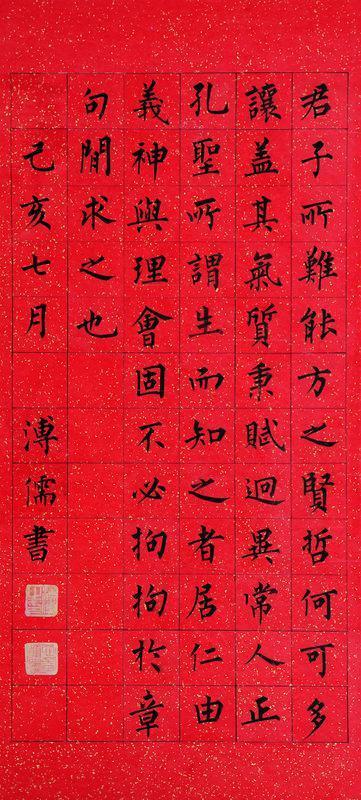 君子所難能方之賢哲何可多
讓盖其氣質秉賦迥異常人正
孔聖所謂生而知之者居仁由
義神與理會固不必拘拘於章
句間求之也
己亥七月 溥儒書